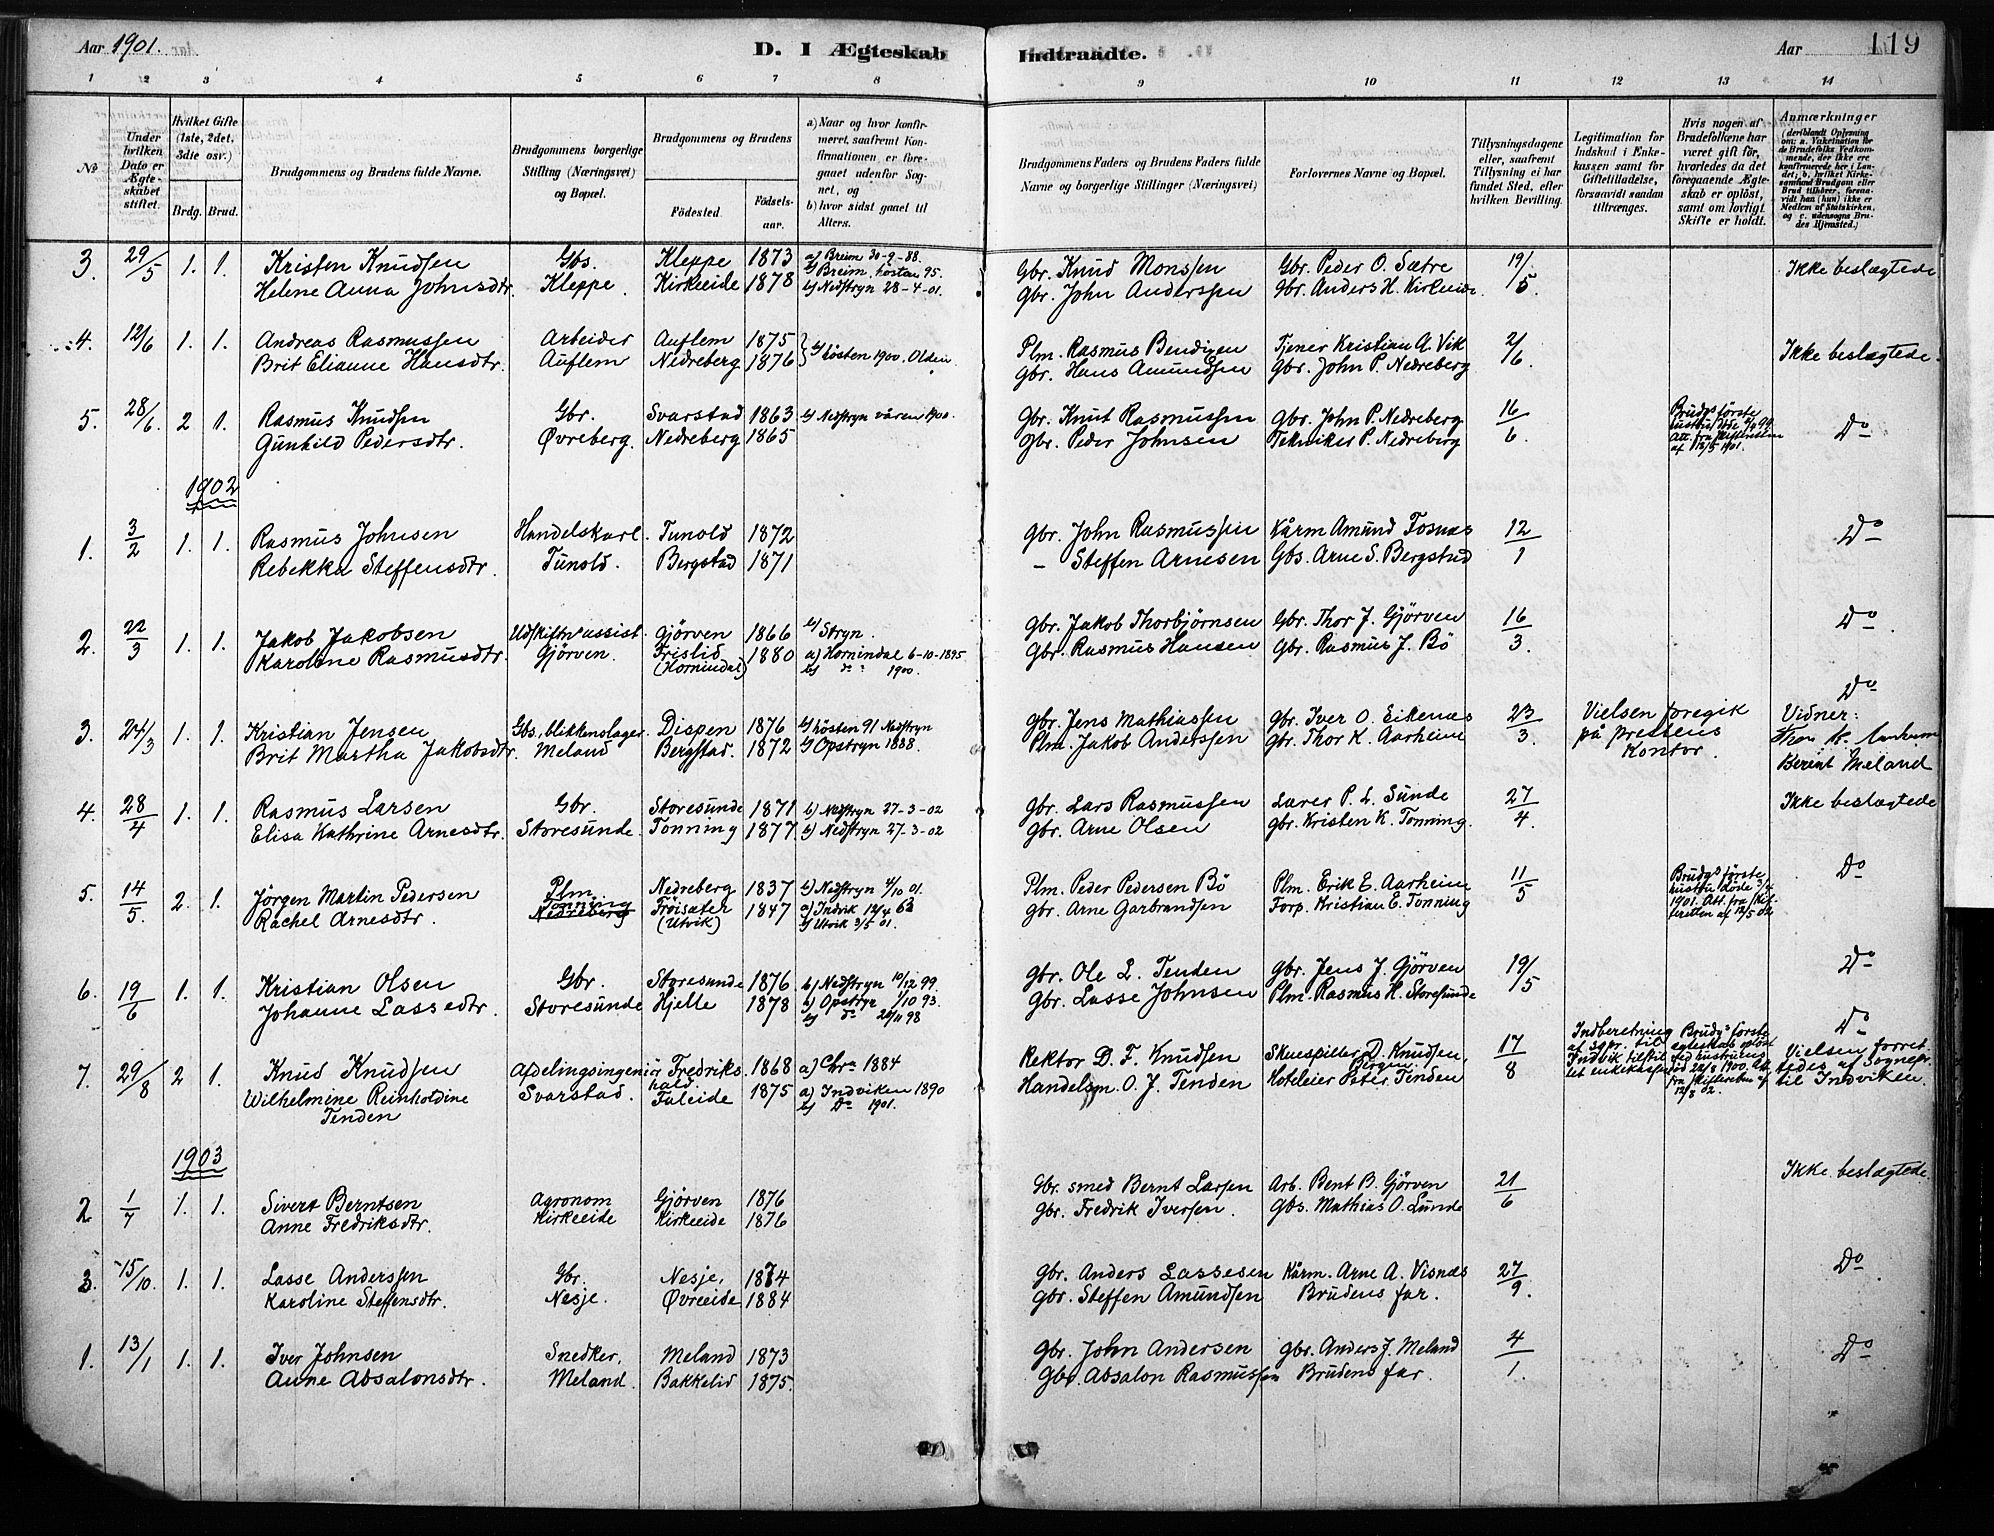 Aar 1901.
D. I Ægteskab Indtraadte.
Aar
119
1 2 3 4 5 6 7 8 9 10 11 12 13 14
№
Under hvilken Dato er Ægteskabet stiftet.
Hvilket Gifte (1ste, 2det, 3die osv.)
Brdg. Brud.
Brudgommens og Brudens fulde Navne.
Brudgommens borgerlige Stilling (Næringsvei) og Bopæl.
Brudgommens og Brudens
Födested.
Födselsaar.
a) Naar og hvor konfirmeret, saafremt Konfirmationen er foregaaet udenfor Sognet, og
b) hvor sidst gaaet til Alters.
Brudgommens Faders og Brudens Faders fulde Navne og borgerlige Stillinger (Næringsvei)
Forlovernes Navne og Bopæl.
Tillysningsdagene eller, saafremt Tillysning ei har fundet Sted, efter hvilken Bevilling.
Legitimation for Indskud i Enkekassen samt for Giftetilladelse, forsaavidt saadan tiltrænges.
Hvis nogen af Brudefolkene har været gift för, hvorledes da det foregaaende Ægteskab er oplöst, samt om lovligt Skifte er holdt.
Anmærkninger (deriblandt Oplysning om: a. Vakcination for de Brudefolks Vedkommende, der ikke ere konfirmerede her i Landet; b. hvilket Kirkesamfund Brudgom eller Brud tilhörer, forsaavidt han (hun) ikke er Medlem af Statskirken, og c. udensogns Brudes Hjemsted.)
3. 29/5 1. 1. Kristen Knudsen Gbs. Kleppe 1873 a) Breim 30-9-88. Gbr. Knud Monssen Gbr. Peder O. Sætre 19/5 Ikke beslægtede
b) Breim, høsten 95.
Helene Anna Johnsdtr. Kleppe. Kirkeeide 1878 b) Nedstryn 28-4-01. Gbr. John Anderssen Gbr. Anders H. Kirkeeide.
4. 12/6 1. 1. Andreas Rasmussen Arbeider Auflem 1875 b) høsten 1900. Olden Plm. Rasmus Bendixen Tjener Kristian A. Vik 2/6 Ikke beslægtede.
Brit Elianne Hansdtr. Auflem Nedreberg 1876 Gbr. Hans Amundsen Gbr. John P. Nedreberg
5. 28/6 2 1. Rasmus Knudsen Gbr. Svarstad 1863 b) Nedstryn våren 1900. Gbr. Knut Rasmussen Gbr. John P. Nedreberg 16/6. Brudgs første hustru døde 99. Att. fra skifteretten af 12/5 1901. Do
Gunhild Pedersdtr. Øvreberg. Nedreberg 1865 Gbr. Peder Johnsen Tekniker P. Nedreberg
1902
1. 3/2 1. 1. Rasmus Johnsen Handelskarl. Tunold 1872 Gbr. John Rasmussen Kårm Amund Tosnæs 12/1 Do
Rebekka Steffensdtr. Tunold. Bergstad 1871 – Steffen Arnesen Gbs. Arne S. Bergstad
2. 22/3 1. 1. Jakob Jakobsen Udskiftn. assist. Gjörven 1866 b) Stryn. Gbr. Jakob Thorbjörnsen Gbr. Thor J. Gjörven 16/3. Do
Karoline Rasmusdtr. Gjörven. Frislid (Hornindal) 1880 a) Hornindal 6-10-1895 b) do 1900. Gbr. Rasmus Hansen Gbr. Rasmus J. Bö
3. 24/3 1. 1. Kristian Jensen Gbs., blikkenslager. Dispen 1876 b) høsten 91 Nedstryn Gbr. Jens Mathiassen Gbr. Iver O. Eikenæs 23/3. Vielsen foregik på prestens kontor. Do Vidner:
Brit Martha Jakobsdtr. Meland Bergstad. 1872 b) Opstryn 1888. Plm. Jakob Anderssen Gbr. Thor K. Aarheim Thor K. Aarheim
Berent Meland
4. 28/4 1. 1. Rasmus Larsen Gbr. Storesunde 1871 b) Nedstryn 27-3-02 Gbr. Lars Rasmussen Lærer P. L. Sunde 27/4. Ikke beslægtede
Elisa Kathrine Arnesdtr. Storesunde. Tonning 1877. b) Nedstryn 27-3-02 Gbr. Arne Olsen Gbr. Kristen K. Tonning.
5. 14/5. 2. 1. Jörgen Martin Pedersen Plm. Nedreberg 1837 b) Nedstryn 4/10 01. Plm. Peder Pedersen Bö Plm. Erik E. Aarheim 11/5 Brudgs første hustru døde 3/4 1901. Att. fra skifteretten af 12/5 02 Do
Rachel Arnesdtr. Tonning Nedreberg Fröisæter (Utvik) 1847 a) Indvik 12/4 63 b) Utvik 3/5 01. Gbr. Arne Garbrandsen Forp. Kristian E. Tonning
6. 19/6 1. 1. Kristian Olsen Gbr. Storesunde 1876 b) Nedstryn 10/12 99. Gbr. Ole L. Tenden Gbr. Jens J. Gjörven 19/5 Do
Johanne Lassedtr. Storesunde Hjelle 1878 b) Opstryn 1/10 93. b) do 20/11 98 Gbr. Lasse Johnsen Plm. Rasmus K. Storesunde
7. 29/8 2 1. Knud Knudsen Afdelingsingeniör Fredrikshald 1868 a) Chra 1884 Rektor D. F. Knudsen Skuespiller D. Knudsen, Bergen 17/8 Indberetning af sgpr. til Indvik tilstillet enkekassen Brudgs første egteskab opløst ved hustruens død 22/8 1900. Att. fra skifteretten af 12/8 02. Do Vielsen forrettedes af Sognepr. til Indviken.
Wilhelmine Reinholdine Tenden Svarstad. Faleide 1875 a) Indviken 1890 b) Do 1901. Handelsm. O. J. Tenden Hoteleier Peter Tenden
1903
2 1/7 1. 1. Sivert Berntsen Agronom Gjörven 1876 Gbr. smed Bernt Larsen Arb. Bent B. Gjörven 21/6 Ikke beslægtede
Anne Fredriksdtr. Kirkeeide Kirkeeide 1876 Gbr. Fredrik Iversen. Gbs. Mathias O. Lunde
3. 15/10. 1. 1. Lasse Anderssen Gbr. Nesje, 1874 Gbr. Anders Lassesen Kårm. Arne A. Visnæs 27/9. Do
Karoline Steffensdtr. Nesje. Øvreeide 1884 Gbr. Steffen Amundsen Brudens far.
1. 13/1 1. 1. Iver Johnsen Snedker, Meland 1873 Gbr. John Andersen Gbr. Anders J. Meland 4/1. Do
Anne Absalonsdtr. Meland. Bakkelid 1875. Gbr. Absalon Rasmussen Brudens far.